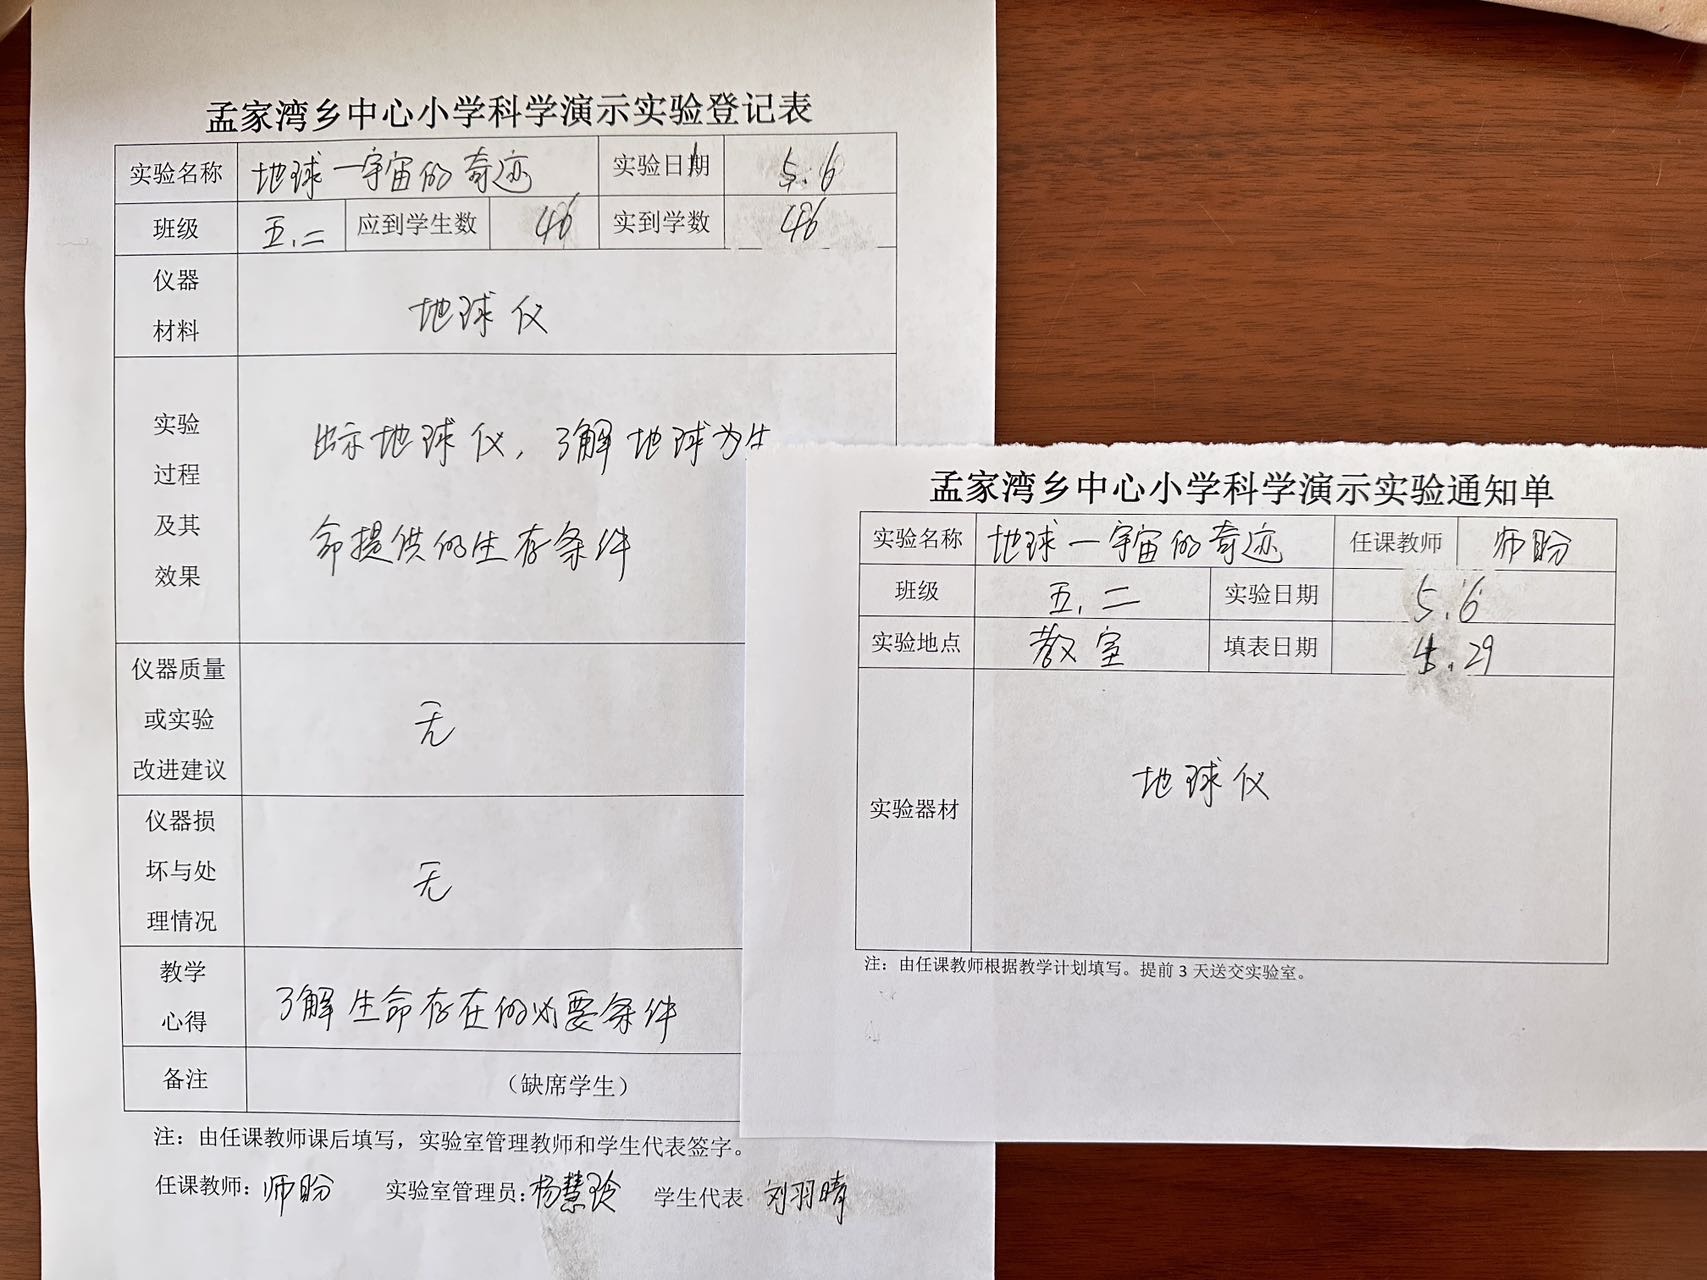 孟家湾乡中心小学科学演示实验登记表
实验名称 地球—宇宙的奇迹 实验日期 5.6
班级 五.二 应到学生数 46 实到学数 46
仪器
材料
地球仪
实验
过程
及其
效果
出示地球仪，了解地球为生
命提供的生存条件
仪器质量
或实验
改进建议
无
仪器损
坏与处
理情况
无
教学
心得
了解生命存在的必要条件
备注 （缺席学生）
注：由任课教师课后填写，实验室管理教师和学生代表签字。
任课教师：师盼 实验室管理员：杨慧玲 学生代表 刘羽晴
孟家湾乡中心小学科学演示实验通知单
实验名称 地球—宇宙的奇迹 任课教师 师盼
班级 五.二 实验日期 5.6
实验地点 教室 填表日期 4.29
实验器材 地球仪
注：由任课教师根据教学计划填写。提前3天送交实验室。